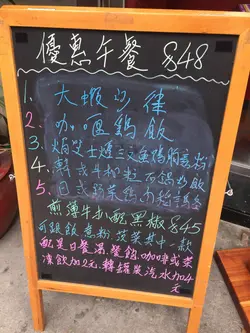 優惠午餐 $48
1. 大蝦沙律
2. 咖喱雞飯
3. 焗芝士通三文魚鴨胸意粉
4. 牛柳粒石鍋炒飯
5. 日式 雞
煎薄牛扒配黑椒 $45
可跟飯意粉菠菜其中一款
配是日餐湯餐飽咖啡或茶
凍飲加2元 轉罐裝汽水加4元